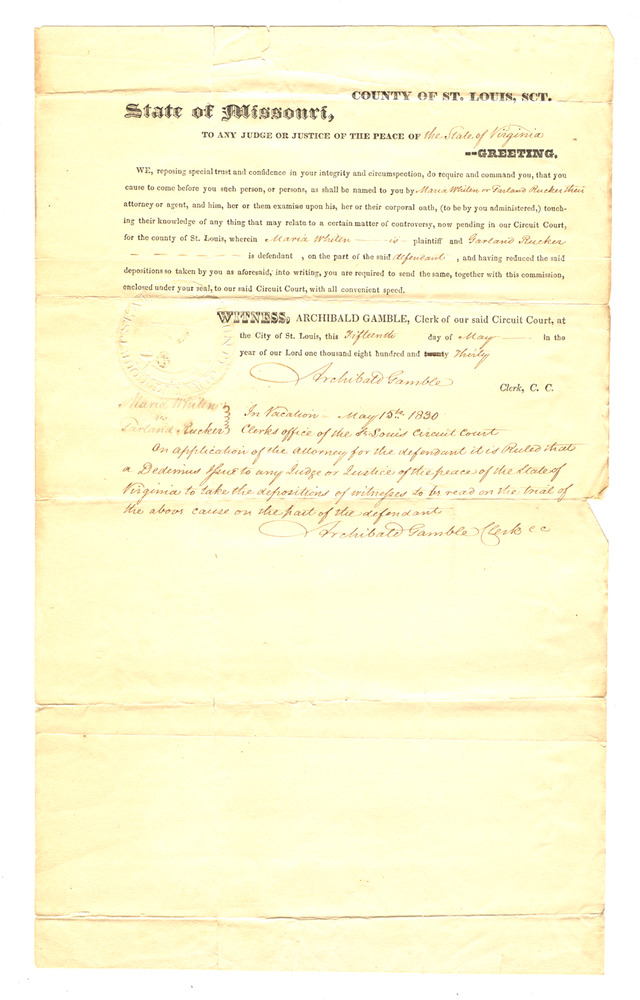 COUNTY OF ST. LOUIS, SCT.
State of Missouri,
TO ANY JUDGE OR JUSTICE OF THE PEACE OF the State of Virginia
--GREETING.
WE, reposing special trust and confidence in your integrity and circumspection, do require and command you, that you
cause to come before you such person, or persons, as shall be named to you by Maria Whiten or Garland Rucker their
attorney or agent, and him, her or them examine upon his, her or their corporal oath, (to be by you administered,) touch-
ing their knowledge of any thing that may relate to a certain matter of controversy, now pending in our Circuit Court,
for the county of St. Louis, wherein Maria Whiten — is — plaintiff and Garland Rucker
— — — — — is defendant , on the part of the said defendant , and having reduced the said
depositions so taken by you as aforesaid, into writing, you are required to send the same, together with this commission,
enclosed under your seal, to our said Circuit Court, with all convenient speed.
WITNESS, ARCHIBALD GAMBLE, Clerk of our said Circuit Court, at
the City of St. Louis, this Fifteenth day of May — in the
year of our Lord one thousand eight hundred and twenty Thirty
Archibald Gamble
Clerk, C. C.
Maria Whiten
vs
Garland Rucker
In Vacation — May 15th 1830
Clerks office of the St Louis Circuit Court
On application of the Attorney for the defendant it is Ruled that
a Dedimus Issue to any Judge or Justice of the peace of the State of
Virginia to take the depositions of witnesses to be read on the trial of
the above cause on the part of the defendant
Archibald Gamble Clerk c c